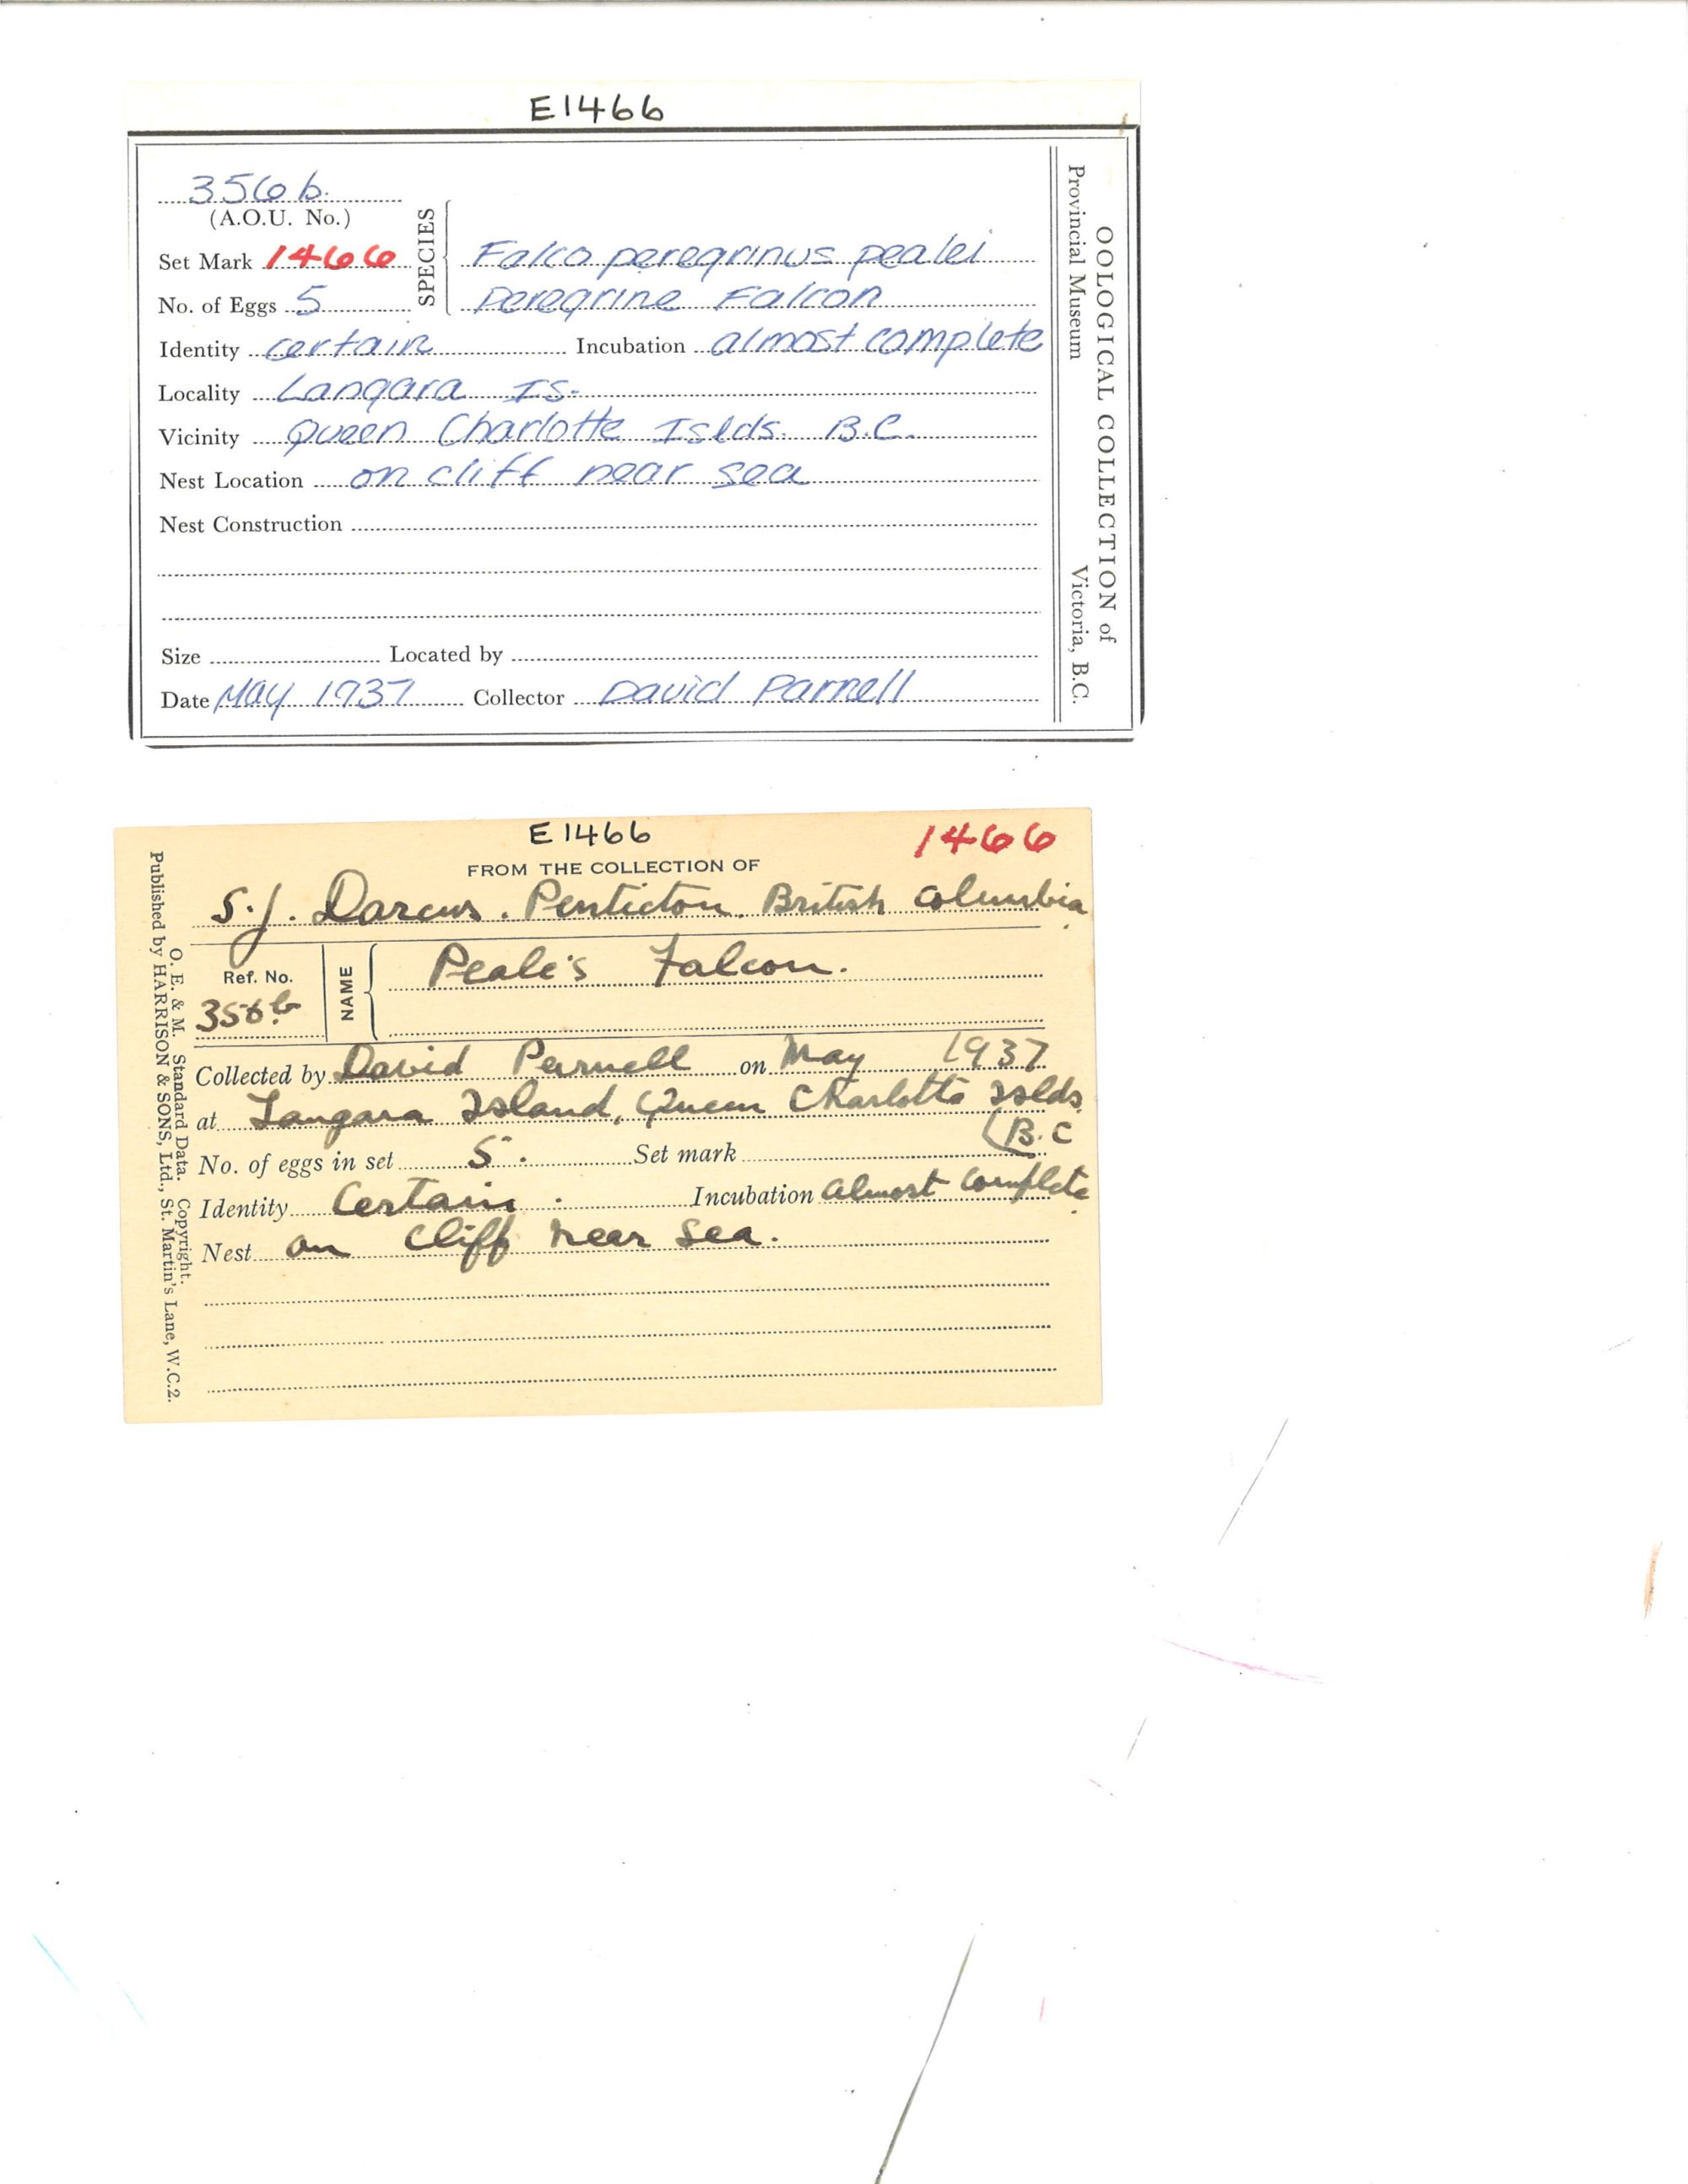 E1466
356b.
(A.O.U. No.)
SPECIES
Set Mark 1466 Falco peregrinus pealei
No. of Eggs 5 Peregrine Falcon
Identity certain Incubation almost complete
Locality Langara Is.
Vicinity Queen Charlotte Islds. B.C.
Nest Location on cliff near sea
Nest Construction
Size Located by
Date May 1937 Collector David Parnell
OOLOGICAL COLLECTION of
Provincial Museum Victoria, B.C.
E1466 1466
FROM THE COLLECTION OF
S.J. Darcus. Penticton. British Columbia.
Ref. No. NAME Peale's Falcon.
356b
Collected by David Parnell on May 1937
at Langara Island, Queen Charlotte Islds.
(B.C
No. of eggs in set 5. Set mark
Identity Certain. Incubation almost complete.
Nest on cliff near sea.
O. E. & M. Standard Data. Copyright.
Published by HARRISON & SONS, Ltd., St. Martin's Lane, W.C.2.